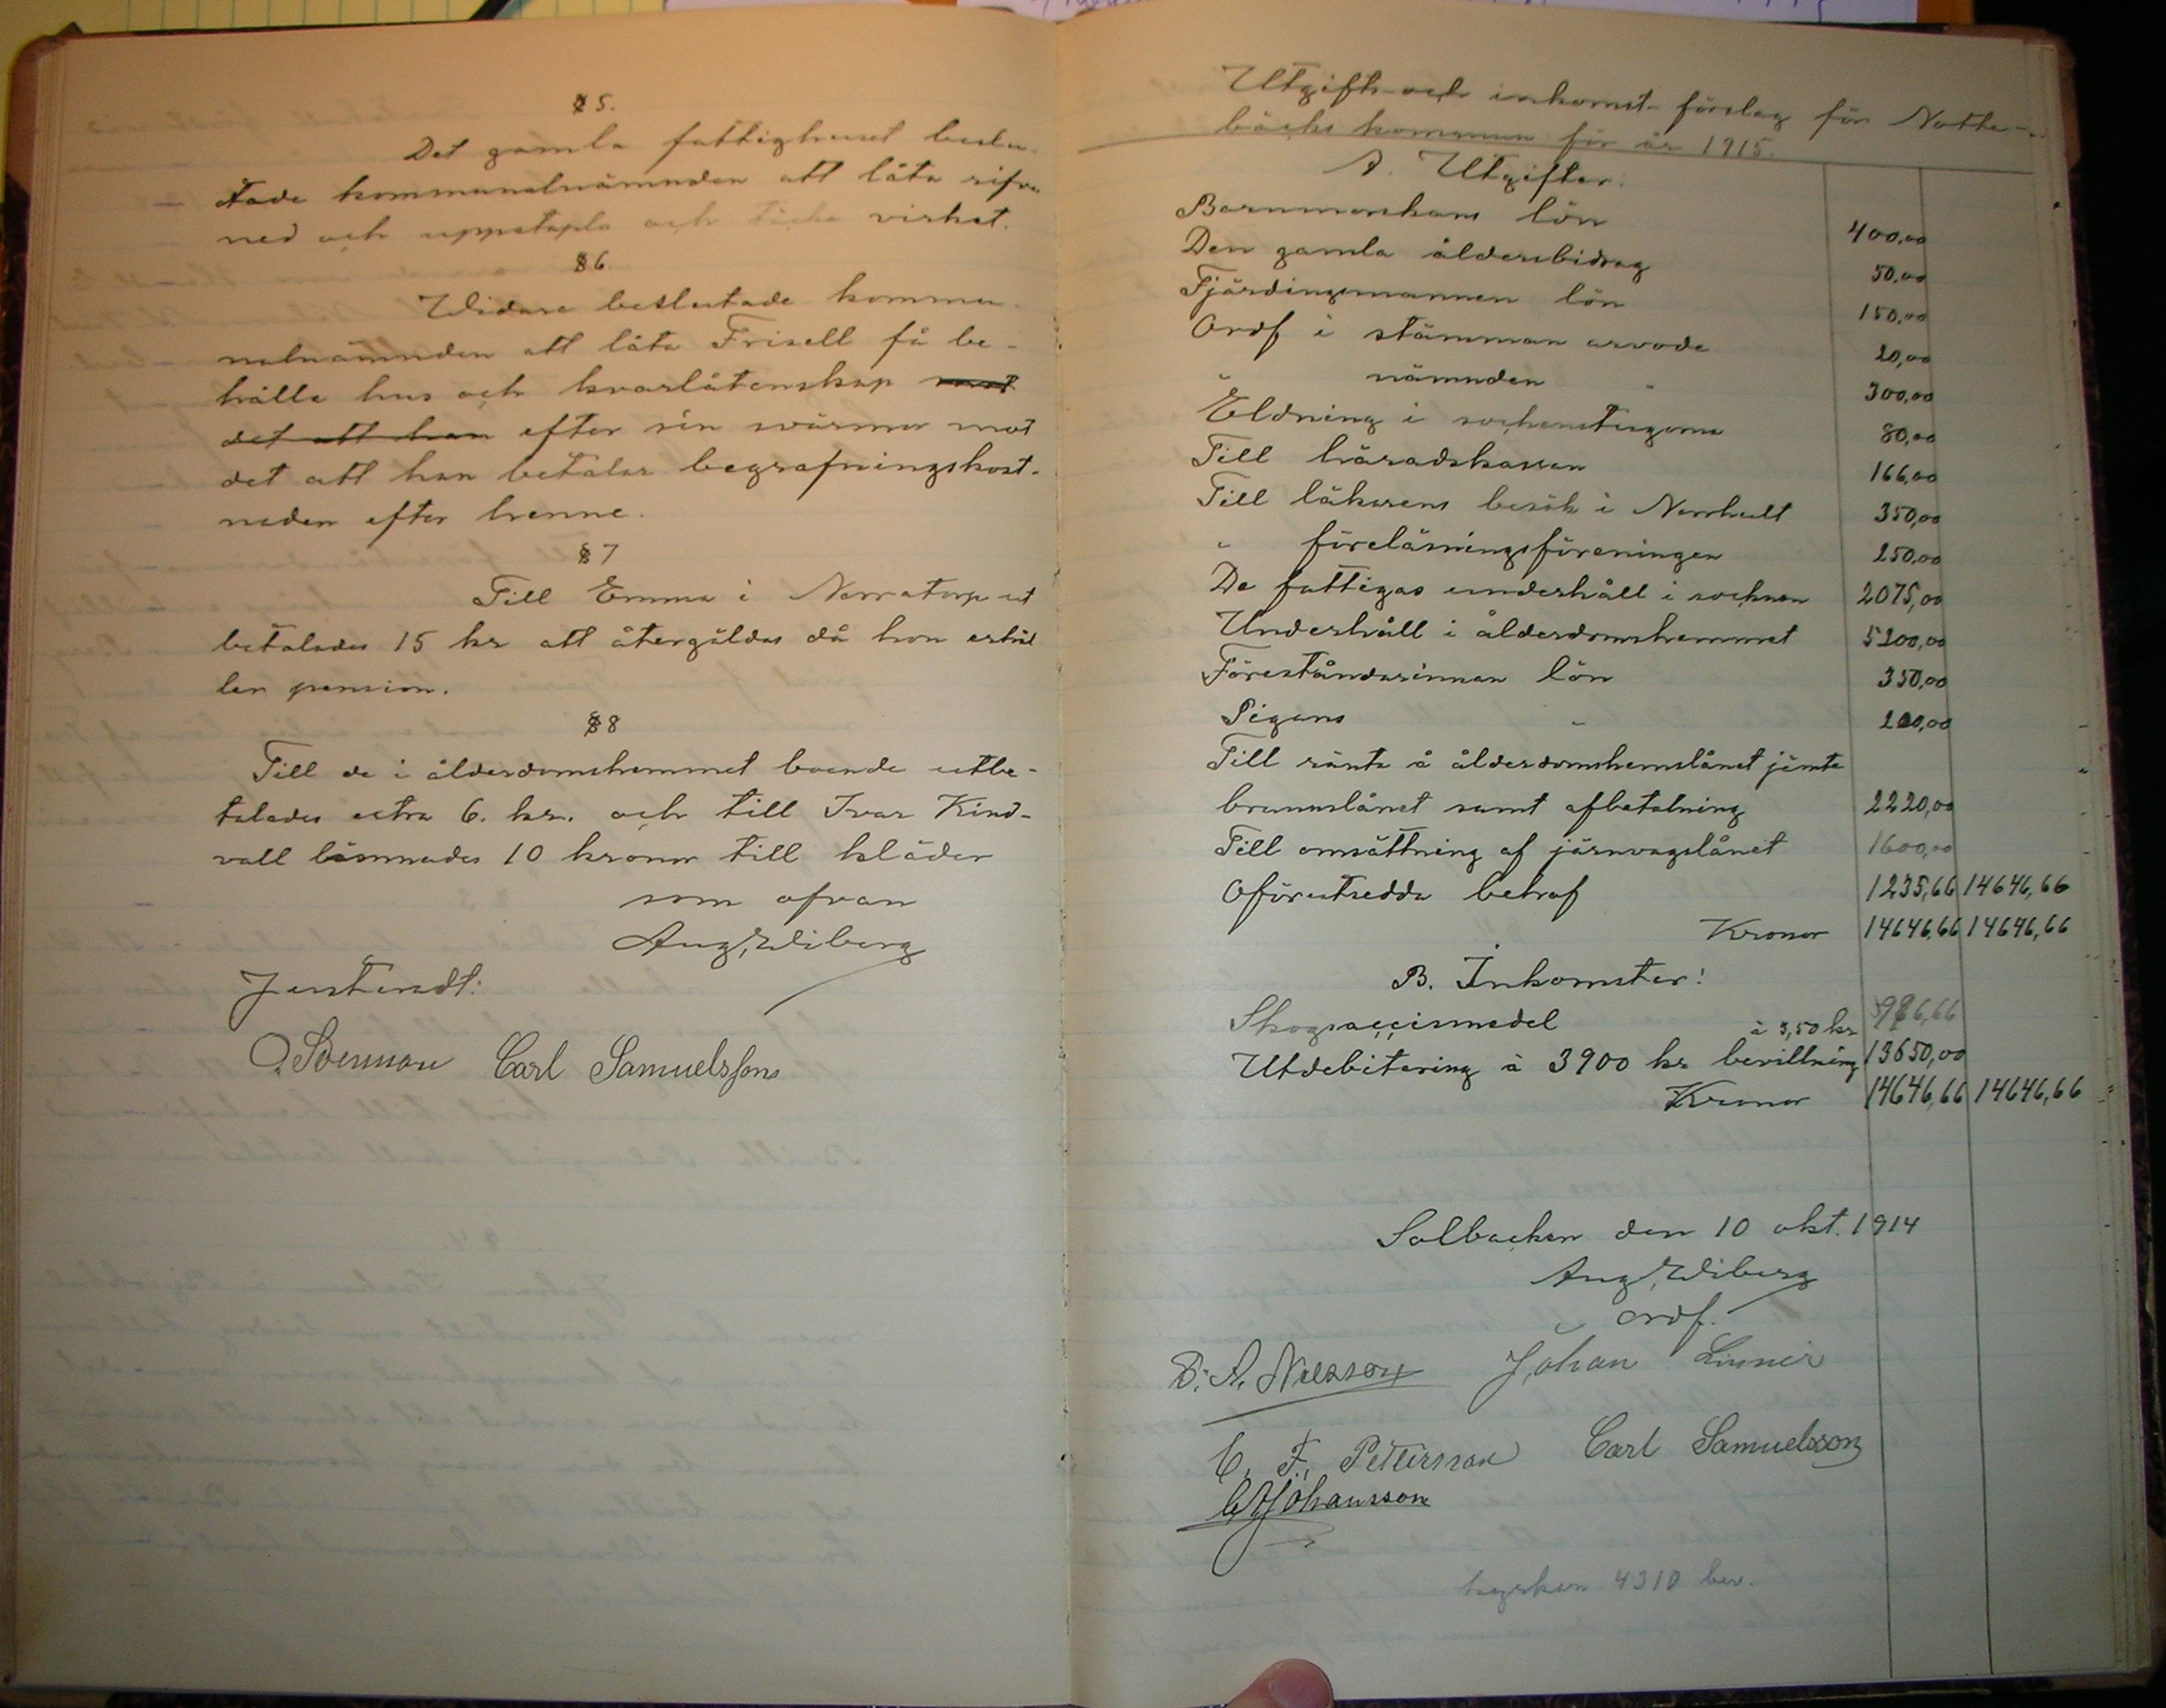 § 5.
Det gamla fattighuset beslu-
tade kommunalnämnden att låta rifva
ned och uppstapla och täcka virket.
§ 6.
Widare beslutade kommu-
nalnämnden att låta Frisell få be-
hålla hus och kvarlåtenskap mot
det att han efter sin svärmor mot
det att han betalar begrafningskost-
naden efter henne.
§ 7
Till Emma i Norratorp ut
betalades 15 kr att återgäldas då hon erhål
ler pension.
§ 8
Till de i ålderdomshemmet boende utbe-
talades extra 6. kr. och till Ivar Kind-
vall lämnades 10 kronor till kläder
som ofvan
Aug. Wiberg
Justeradt:
Carl Samuelsson
Utgifts- och inkomst- förslag för Notte-
bäcks kommun för år 1915.
A. Utgifter:
Barnmorskans lön 400,00
Den gamla åldersbidrag 50,00
Fjärdingsmannen lön 150,00
Ordf i stämman arvode 20,00
" nämnden " 300,00
Eldning i sockenstugorna 80,00
Till häradskassan 166,00
Till läkarens besök i Norrhult 350,00
" föreläsningsföreningen 250,00
De fattigas underhåll i socknen 2075,00
Underhåll i ålderdomshemmet 5200,00
Föreståndarinnan lön 350,00
Pigans " 200,00
Till ränta å ålderdomshemslånet jämte
brunnslånet samt afbetalning 2220,00
Till omsättning af järnvagslånet 1600,00
Oförutsedda behof 1235,66 14646,66
Kronor 14646,66 14646,66
B. Inkomster:
Skogsaccismedel 996,66
à 3,50 kr
Utdebitering à 3900 kr bevillning 13650,00
Kronor 14646,66 14646,66
Solbacken den 10 okt. 1914
Aug. Wiberg
ordf.
P. A. Nilsson Johan Linnér
C. F. Petersson Carl Samuelsson
C A Johansson
kyrkan 4310 bev.